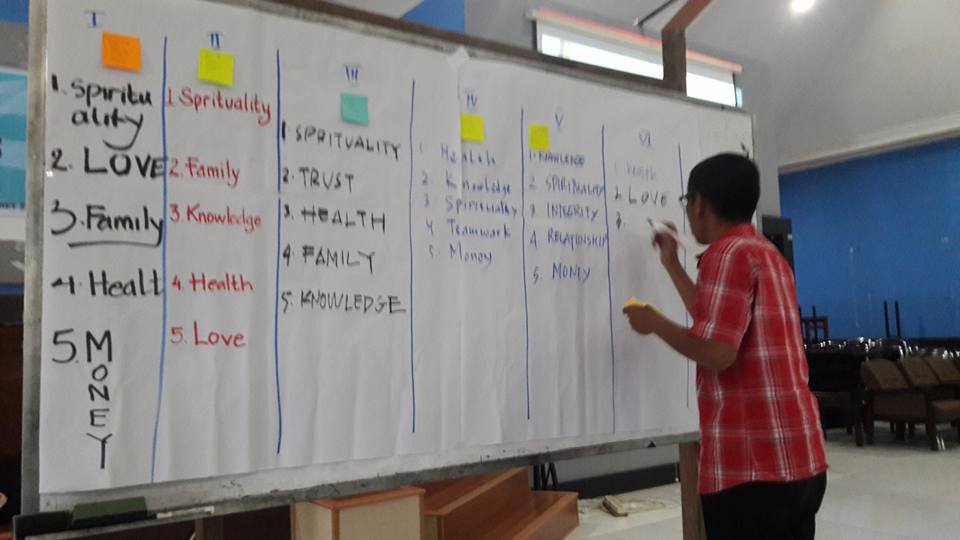 I
1. Spiritu
ality
2. LOVE
3. Family
4. Healt
5. MONEY
II
1 Sprituality
2. Family
3. Knowledge
4. Health
5. Love
III
1 SPRITUALITY
2. TRUST
3. HEALTH
4. FAMILY
5. KNOWLEDGE
IV
1 Health
2 Knowledge
3 Spirituality
4 Teamwork
5. Money
V
1. KNOWLEDGE
2. SPIRITUALITY
3 INTEGRITY
4. RELATIONSHIP
5. MONEY
VI
1 health
2. LOVE
3.